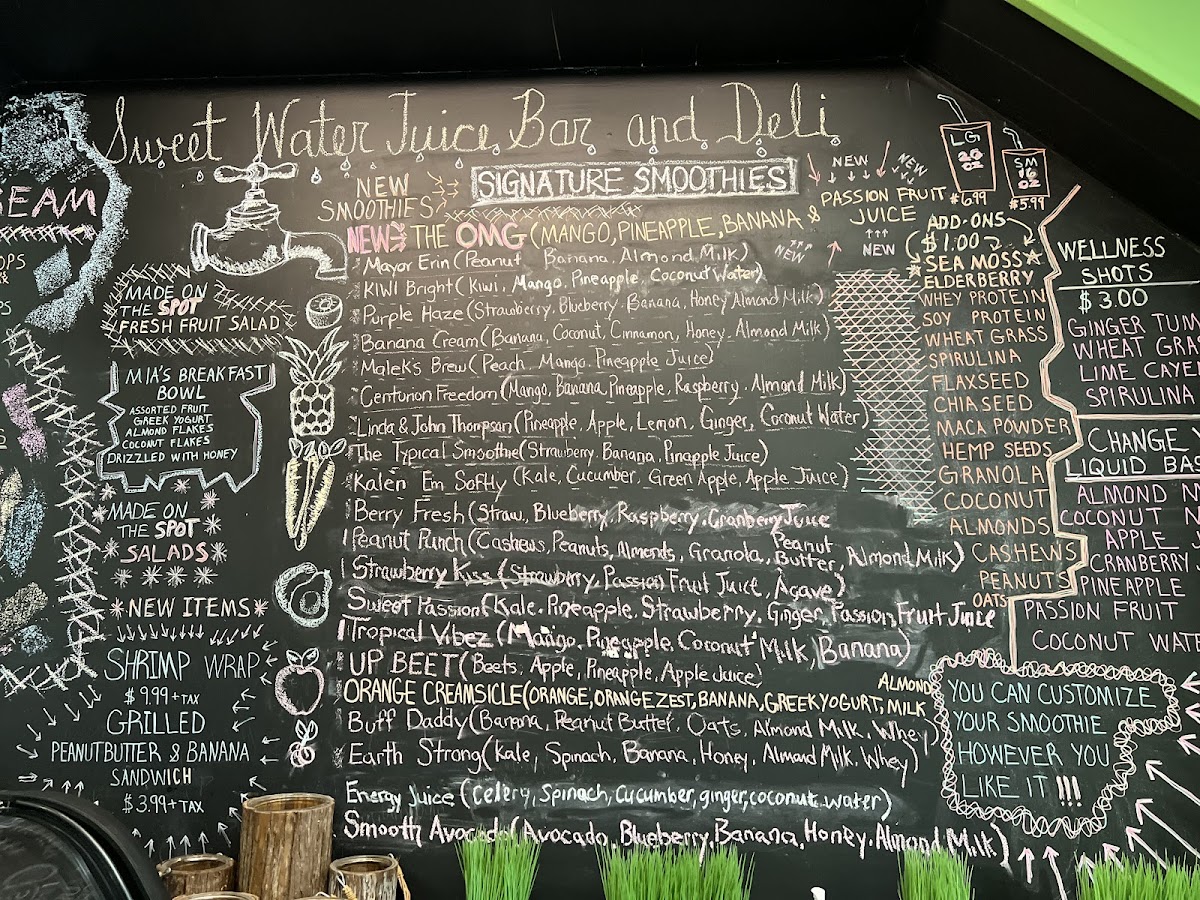 Sweet Water Juice Bar and Deli
SEAM
MADE ON
THE SPOT
FRESH FRUIT SALAD
MIA'S BREAKFAST
BOWL
ASSORTED FRUIT
GREEK YOGURT
ALMOND FLAKES
COCONUT FLAKES
DRIZZLED WITH HONEY
MADE ON
THE SPOT
SALADS
NEW ITEMS
SHRIMP WRAP
$9.99+TAX
GRILLED
PEANUTBUTTER & BANANA
SANDWICH
$3.99+TAX
NEW
SMOOTHIES
SIGNATURE SMOOTHIES
NEW THE OMG (MANGO, PINEAPPLE, BANANA &
PASSION FRUIT
JUICE
NEW
NEW
NEW
NEW
Mayor Erin (Peanut Banana, Almond Milk)
Kiwi Bright (Kiwi, Mango, Pineapple, Coconut Water)
Purple Haze (Strawberry, Blueberry, Banana, Honey Almond Milk)
Banana Cream (Banana, Coconut, Cinnamon, Honey, Almond Milk)
Malek's Brew (Peach, Mango, Pineapple Juice)
Centurion Freedom (Mango, Banana, Pineapple, Raspberry, Almond Milk)
Linda & John Thompson (Pineapple, Apple, Lemon, Ginger, Coconut Water)
The Typical Smoothie (Strawberry, Banana, Pineapple Juice)
Kalen Em Softly (Kale, Cucumber, Green Apple, Apple Juice)
Berry Fresh (Straw., Blueberry, Raspberry, Cranberry Juice
Peanut Punch (Cashews, Peanuts, Almonds, Granola, Peanut Butter, Almond Milk)
Strawberry Kiss (Strawberry, Passion Fruit Juice, Agave)
Sweet Passion (Kale, Pineapple, Strawberry, Ginger, Passion Fruit Juice
Tropical Vibez (Mango, Pineapple, Coconut Milk, Banana)
UP BEET (Beets, Apple, Pineapple, Apple Juice)
ORANGE CREAMSICLE (ORANGE, ORANGE ZEST, BANANA, GREEK YOGURT, ALMOND MILK
Buff Daddy (Banana, Peanut Butter, Oats, Almond Milk, Whey)
Earth Strong (Kale, Spinach, Banana, Honey, Almond Milk, Whey)
Energy Juice (Celery, Spinach, Cucumber, ginger, coconut water)
Smooth Avocado (Avocado, Blueberry, Banana, Honey, Almond Milk)
LG
20
OZ
$6.99
SM
16
OZ
$5.99
ADD-ONS
$1.00
SEA MOSS
ELDERBERRY
WHEY PROTEIN
SOY PROTEIN
WHEAT GRASS
SPIRULINA
FLAXSEED
CHIA SEED
MACA POWDER
HEMP SEEDS
GRANOLA
COCONUT
ALMONDS
CASHEWS
PEANUTS
OATS
WELLNESS
SHOTS
$3.00
GINGER
WHEAT
LIME
SPIRULINA
CHANGE
LIQUID
ALMOND
COCONUT
APPLE
CRANBERRY
PINEAPPLE
PASSION FRUIT
COCONUT
YOU CAN CUSTOMIZE
YOUR SMOOTHIE
HOWEVER YOU
LIKE IT !!!